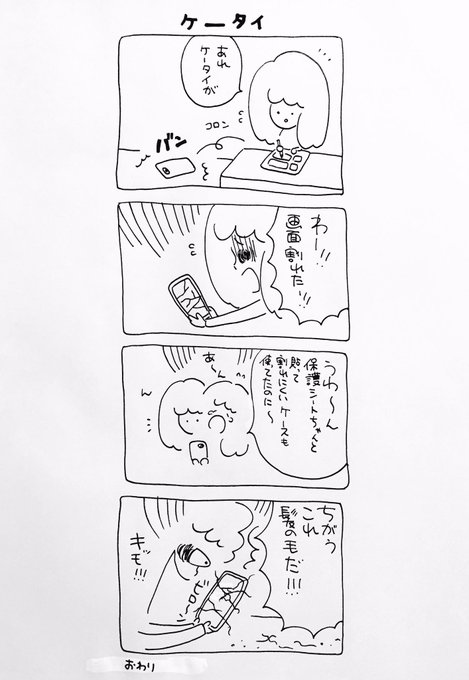 ケータイ
あれ
ケータイが
コロン
バン
わー!!
画面割れた!!
うわ〜ん
保護シートちゃんと
貼って
割れにくいケースも
使ってたのに〜
あ〜ん
ん
ちがう
これ
髪の毛だ!!!
キモ!!!
ピロ〜
おわり